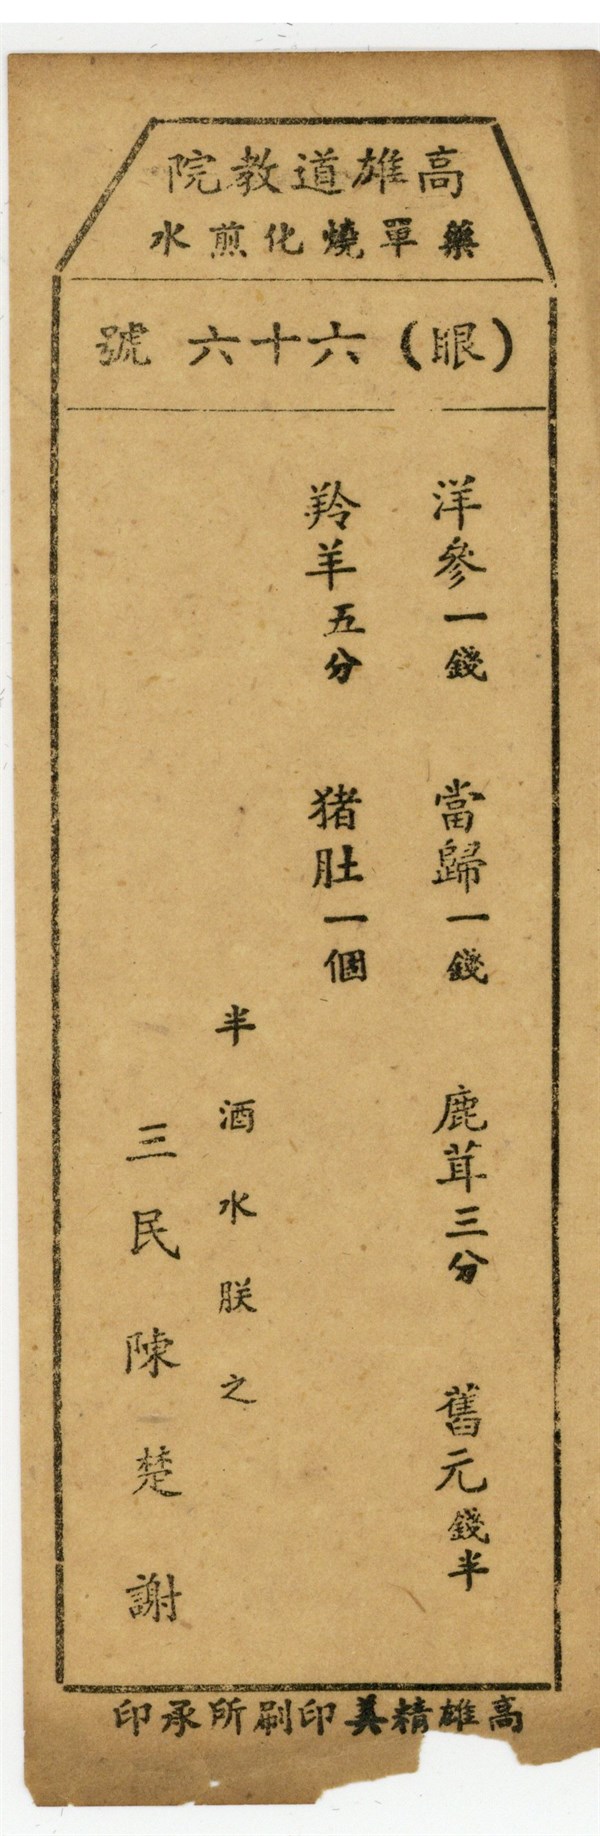 高雄道教院
藥單燒化煎水
(眼)六十六號
洋參一錢 當歸一錢 鹿茸三分 舊元錢半
羚羊五分 猪肚一個
半酒水朕之
三民陳楚謝
高雄精美印刷所承印